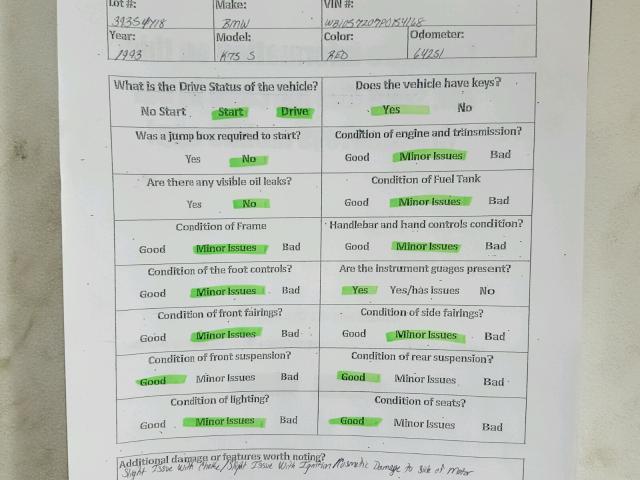 Lot #: Make: VIN #:
39354718 BMW
Year: Model: Color: Odometer:
1993 K75 S RED 64251
What is the Drive Status of the vehicle? Does the vehicle have keys?
No Start Start Drive Yes No
Was a jump box required to start? Condition of engine and transmission?
Yes No Good Minor Issues Bad
Are there any visible oil leaks? Condition of Fuel Tank
Yes No Good Minor Issues Bad
Condition of Frame Handlebar and hand controls condition?
Good Minor Issues Bad Good Minor Issues Bad
Condition of the foot controls? Are the instrument guages present?
Good Minor Issues Bad Yes Yes/has issues No
Condition of front fairings? Condition of side fairings?
Good Minor Issues Bad Good Minor Issues Bad
Condition of front suspension? Condition of rear suspension?
Good Minor Issues Bad Good Minor Issues Bad
Condition of lighting? Condition of seats?
Good Minor Issues Bad Good Minor Issues Bad
Additional damage or features worth noting?
Slight Issue With Choke/Slight Issue With Ignition/Cosmetic Damage to Side of Motor